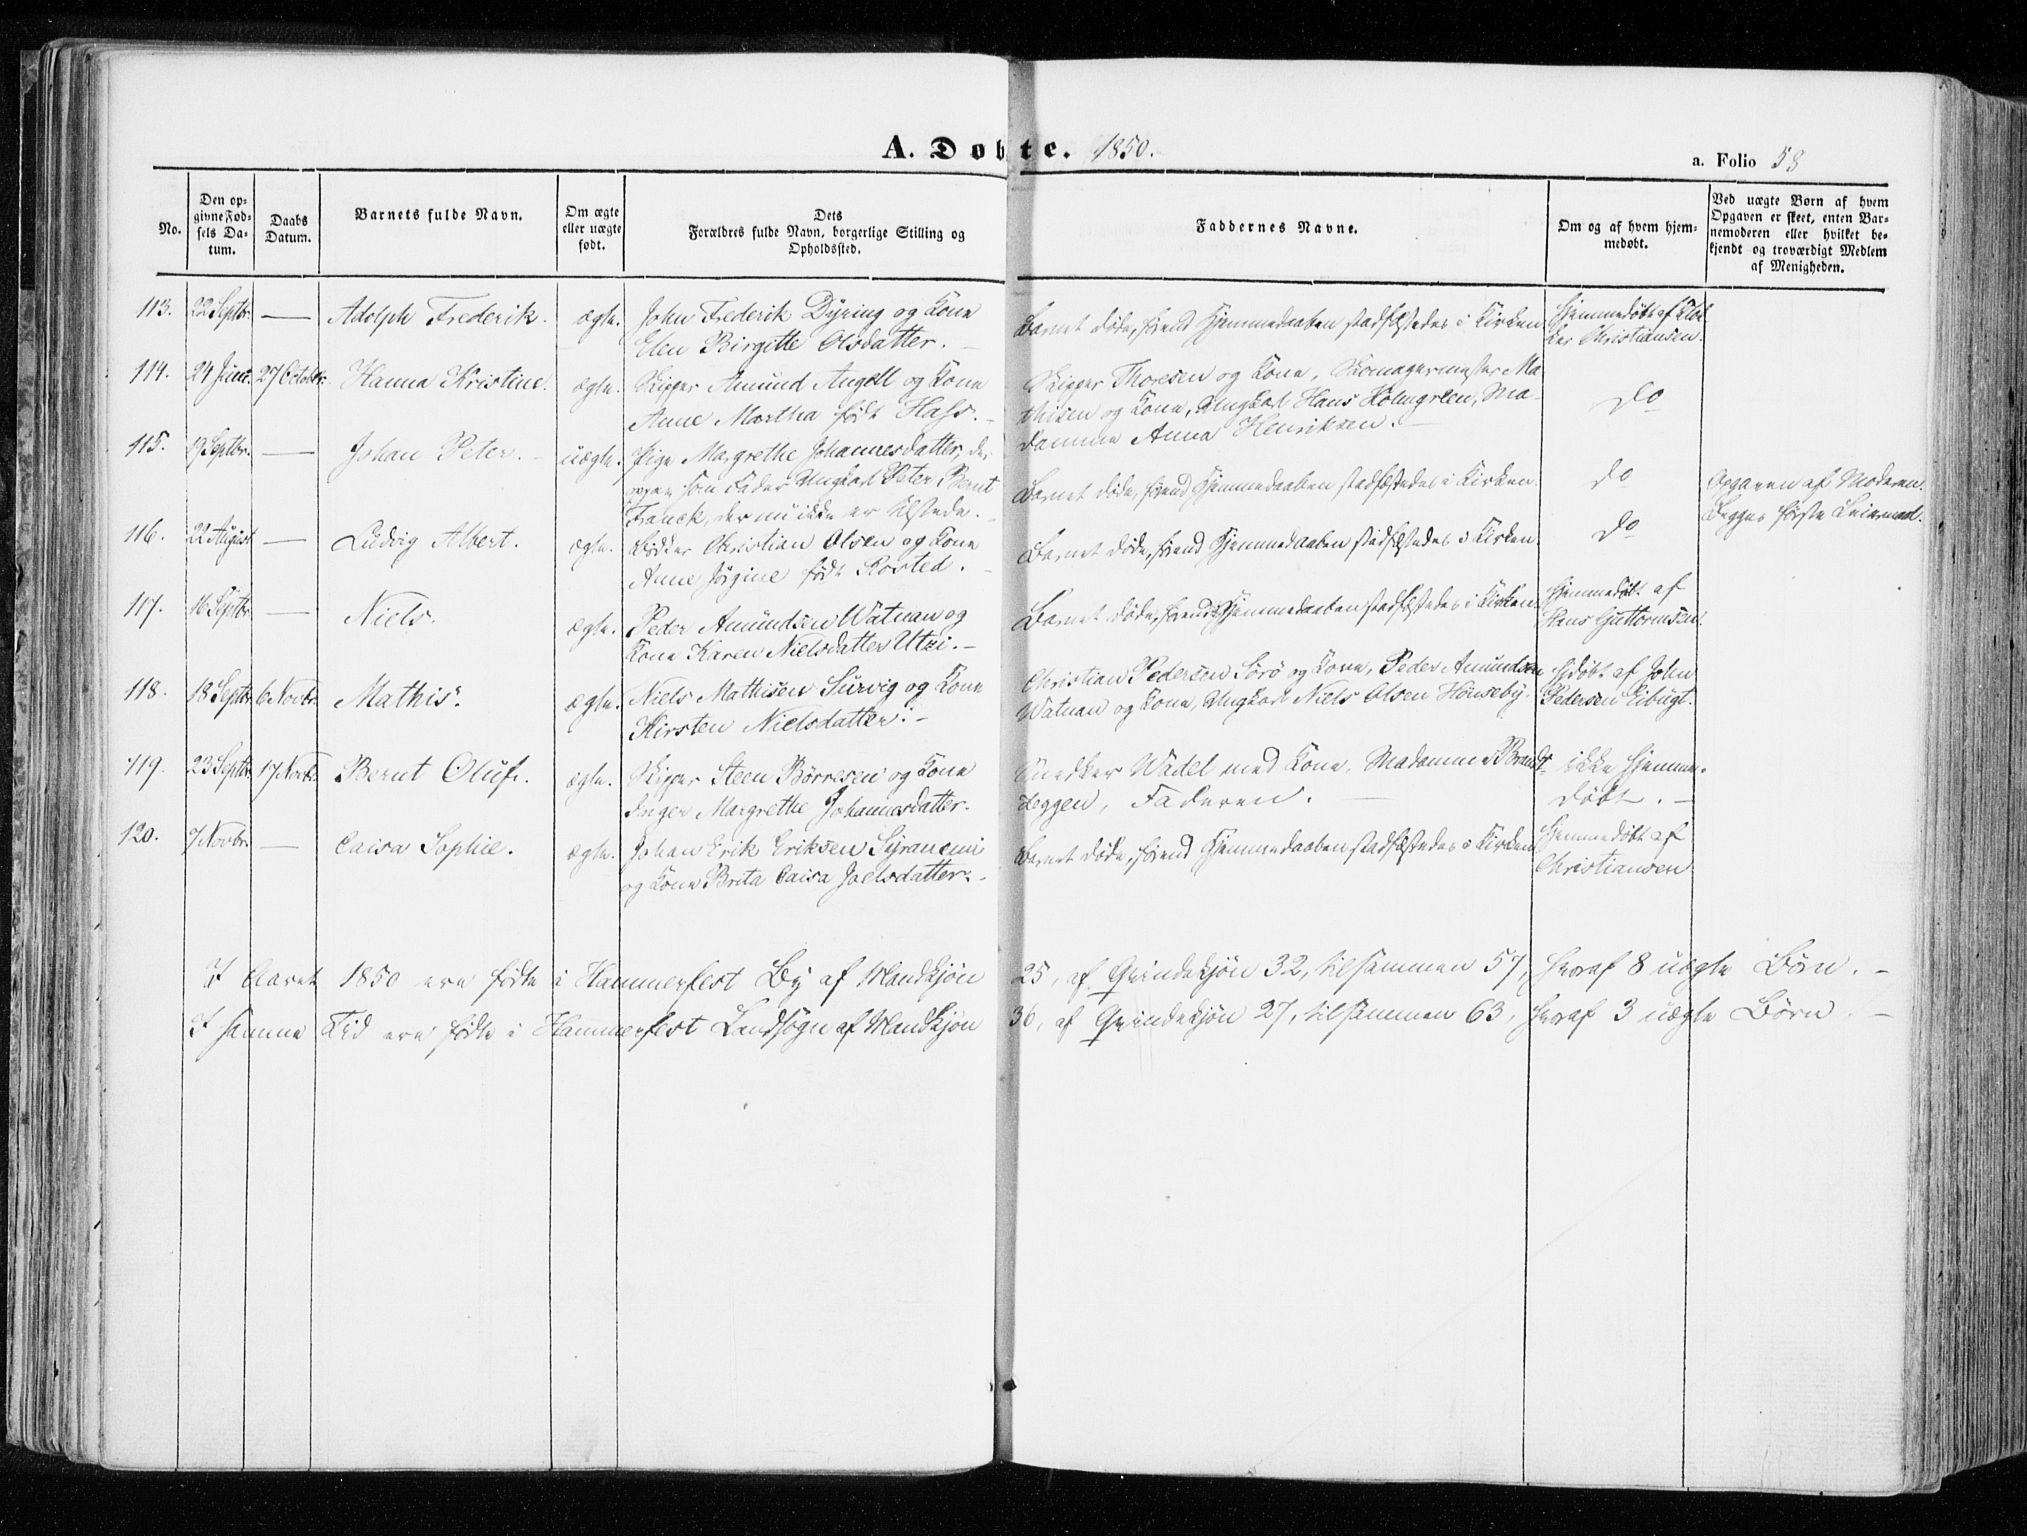 A. Døbte. 1850.
a. Folio 58
No.
Den op-
givne Fød-
sels Da-
tum.
Daabs
Datum.
Barnets fulde Navn.
Om ægte
eller uægte
født.
Dets
Forældres fulde Navn, borgerlige Stilling og
Opholdssted.
Faddernes Navne.
Om og af hvem hjem-
medøbt.
Ved uægte Børn af hvem
Opgaven er skeet, enten Bar-
nemoderen eller hvilket be-
kjendt og troværdigt Medlem
af Menigheden.
113. 22 Septbr. — Adolph Frederik. ægte. John Frederik Dyring og Kone
Elen Birgitte Olsdatter. —
Barnet døde, førend Hjemmedaaben stadfæstedes i Kirken.
Hjemmedøbt af Klok
ker Christiansen.
114. 24 Juni. 27 Octobr. Hanna Kristine. ægte. Skipper Amund Angell og Kone
Anne Martha født Hass. —
Skipper Thoresen og Kone, Skomagermester Ma-
thisen og Kone, Ungkarl Hans Holmgreen, Ma-
damme Anna Henriksen. —
Do
115. 19 Septbr. — Johan Peter. — uægte. Pige Margrethe Johannesdatter, der
opgav som Fader Ungkarl Peter Bernt
Franck, der nu ikke er tilstede. —
Barnet døde, førend Hjemmedaaben stadfæstedes i Kirken.
Do
Opgaven af Moderen.
Begges første Leiermaal.
116. 22 August — Ludvig Albert. ægte. Christian Olsen og Kone
Anne Jørgine født Rosted. —
Barnet døde, førend Hjemmedaaben stadfæstedes i Kirken.
Do
117. 16 Septbr. — Niels. ægte. Peder Amundsen Watnan og
Kone Karen Nielsdatter Utzi. —
Barnet døde, førend Hjemmedaaben stadfæstedes i Kirken.
Hjemmedøbt af
Hans Guttormsen.
118. 18 Septbr. 6 Novbr. Mathis. ægte. Niels Mathisen Survig og Kone
Kirsten Nielsdatter. —
Christian Pedersen Sørø og Kone, Peder Amundsen
Watnan og Kone, Ungkarl Niels Olsen Hønseby.
Hjdøbt af John
Pedersen Eibugt.
119. 23 Septbr. 17 Novbr. Bernt Oluf. ægte. Skipper Steen Børresen og Kone
Inger Margrethe Johannesdatter.
Snedker Wadel med Kone, Madamme Brandt-
Leggen, Faderen. —
ikke hjemme-
døbt. —
120. 7 Novbr. — Caisa Sophie. ægte. Johan Erik Eriksen Syranemi
og Kone Brita Caisa Joelsdatter. —
Barnet døde, førend Hjemmedaaben stadfæstedes i Kirken
Hjemmedøbt af
Christiansen
I Aaret 1850 ere fødte i Hammerfest By af Mandkjøn 25, af Qvindekjøn 32, tilsammen 57, hvoraf 8 uægte Børn. —
I samme Tid ere fødte i Hammerfest Landsogn af Mandkjøn 36, af Qvindekjøn 27, tilsammen 63, hvoraf 3 uægte Børn. —